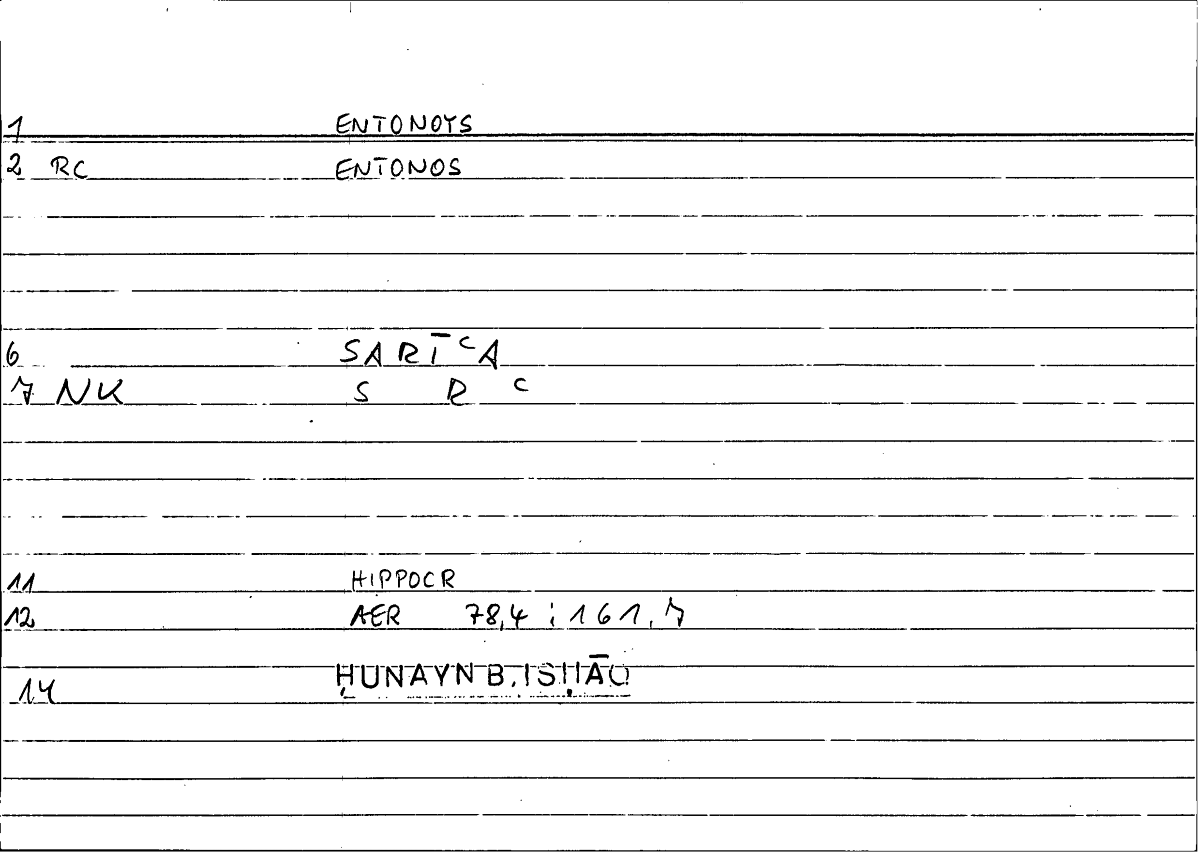 1 ENTONOYS
2 RC ENTONOS
6 SARĪᶜA
7 NK S R ᶜ
11 HIPPOCR
12 AER 78,4 ; 161,7
14 ḤUNAYN B. ISḤĀQ